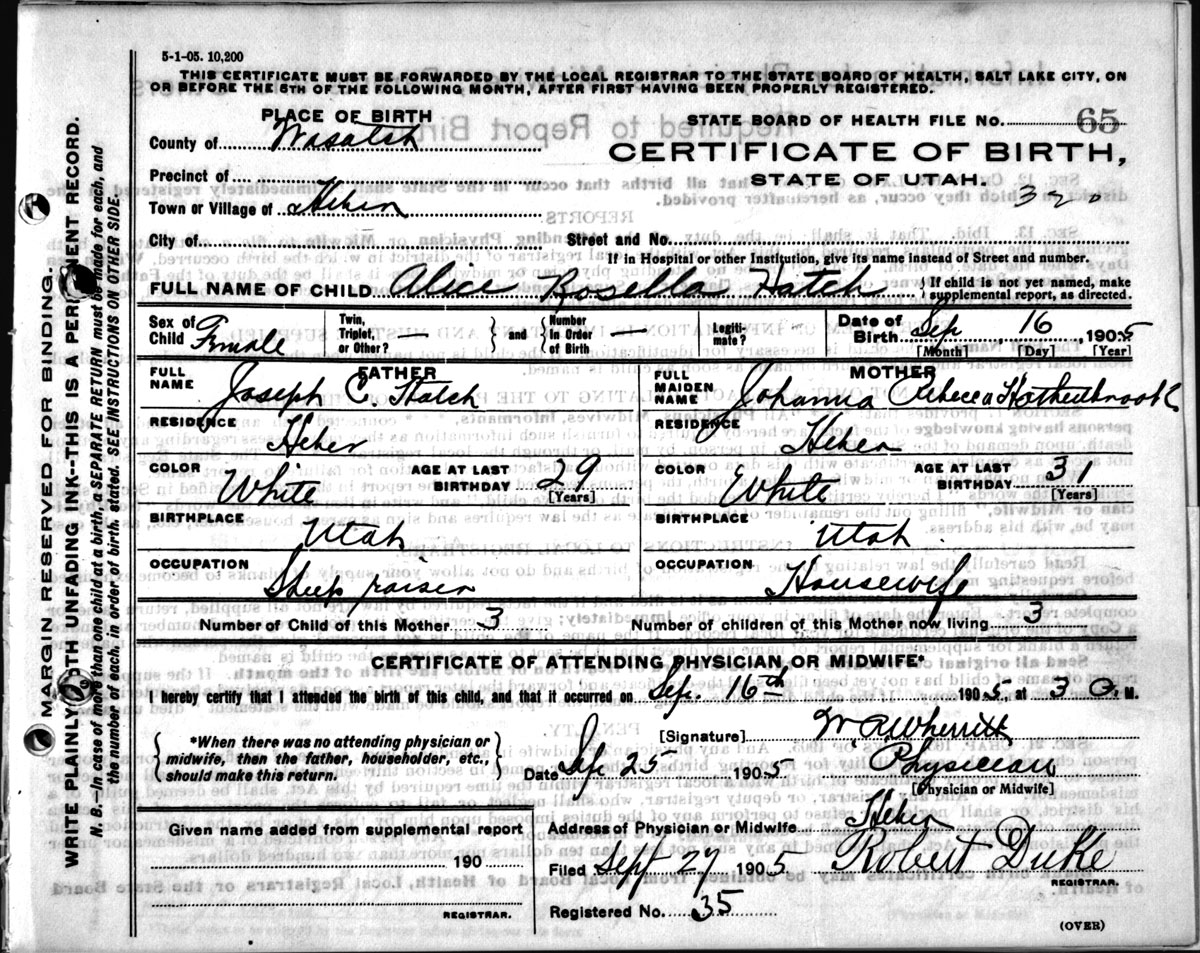 5-1-05. 10,200
THIS CERTIFICATE MUST BE FORWARDED BY THE LOCAL REGISTRAR TO THE STATE BOARD OF HEALTH, SALT LAKE CITY, ON
OR BEFORE THE 5TH OF THE FOLLOWING MONTH, AFTER FIRST HAVING BEEN PROPERLY REGISTERED.
PLACE OF BIRTH
STATE BOARD OF HEALTH FILE NO. 65
County of Wasatch
CERTIFICATE OF BIRTH,
STATE OF UTAH.
Precinct of
320
Town or Village of Heber
City of Street and No.
If in Hospital or other Institution, give its name instead of Street and number.
FULL NAME OF CHILD Alice Rosella Hatch { If child is not yet named, make supplemental report, as directed.
Sex of Child Female Twin, Triplet, or Other? — } and { Number In Order of Birth — Legiti-mate? Date of Birth Sep 16, 1905
[Month] [Day] [Year]
FATHER MOTHER
FULL NAME Joseph C. Hatch FULL MAIDEN NAME Johanna Rebecca
RESIDENCE Heber RESIDENCE Heber
COLOR White AGE AT LAST BIRTHDAY 29 [Years] COLOR White AGE AT LAST BIRTHDAY 31 [Years]
BIRTHPLACE Utah BIRTHPLACE Utah
OCCUPATION Sheep raiser OCCUPATION Housewife
Number of Child of this Mother 3 Number of children of this Mother now living 3
CERTIFICATE OF ATTENDING PHYSICIAN OR MIDWIFE*
I hereby certify that I attended the birth of this child, and that it occurred on Sep. 16th 1905, at 3 M.
{ *When there was no attending physician or midwife, then the father, householder, etc., should make this return. }
[Signature] W R Wherritt
Date Sep 25 1905 Physician
[Physician or Midwife]
Given name added from supplemental report
Address of Physician or Midwife Heber
190
Filed Sept 27 1905 Robert Duke
REGISTRAR.
REGISTRAR.
Registered No. 35
(OVER)
MARGIN RESERVED FOR BINDING.
WRITE PLAINLY WITH UNFADING INK--THIS IS A PERMANENT RECORD.
N. B.—In case of more than one child at a birth, a SEPARATE RETURN must be made for each, and
the number of each, in order of birth, stated. SEE INSTRUCTIONS ON OTHER SIDE.